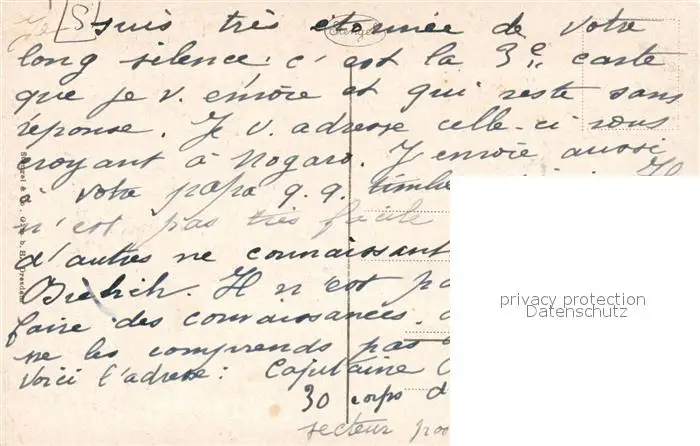 Je suis très étonnée de votre
long silence c'est la 3e carte
que je v. envoie et qui reste sans
réponse. Je v. adresse celle-ci vous
croyant à Nogaro. J'envoie aussi
à votre papa q.q. timb
n'est pas très facile
d'autres ne connaissant
Il n'est pa
faire des connaissances.
ne les comprends pas
Voici l'adresse: Capitaine
30 corps d
secteur pos
Stengel & Co., G.m.b.H., Dresden
privacy protection
Datenschutz